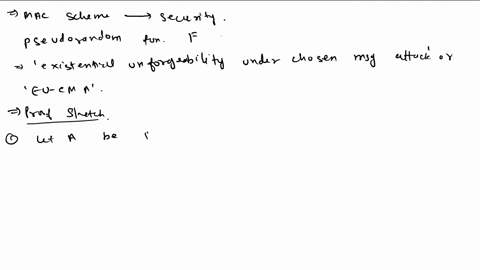 ⇒ MAC scheme ⟶ security.
pseudorandom fun. F
⇒ 'existential unforgeability under chosen msg attack' or
'EU-CMA'.
⇒ Proof Sketch.
① Let A be